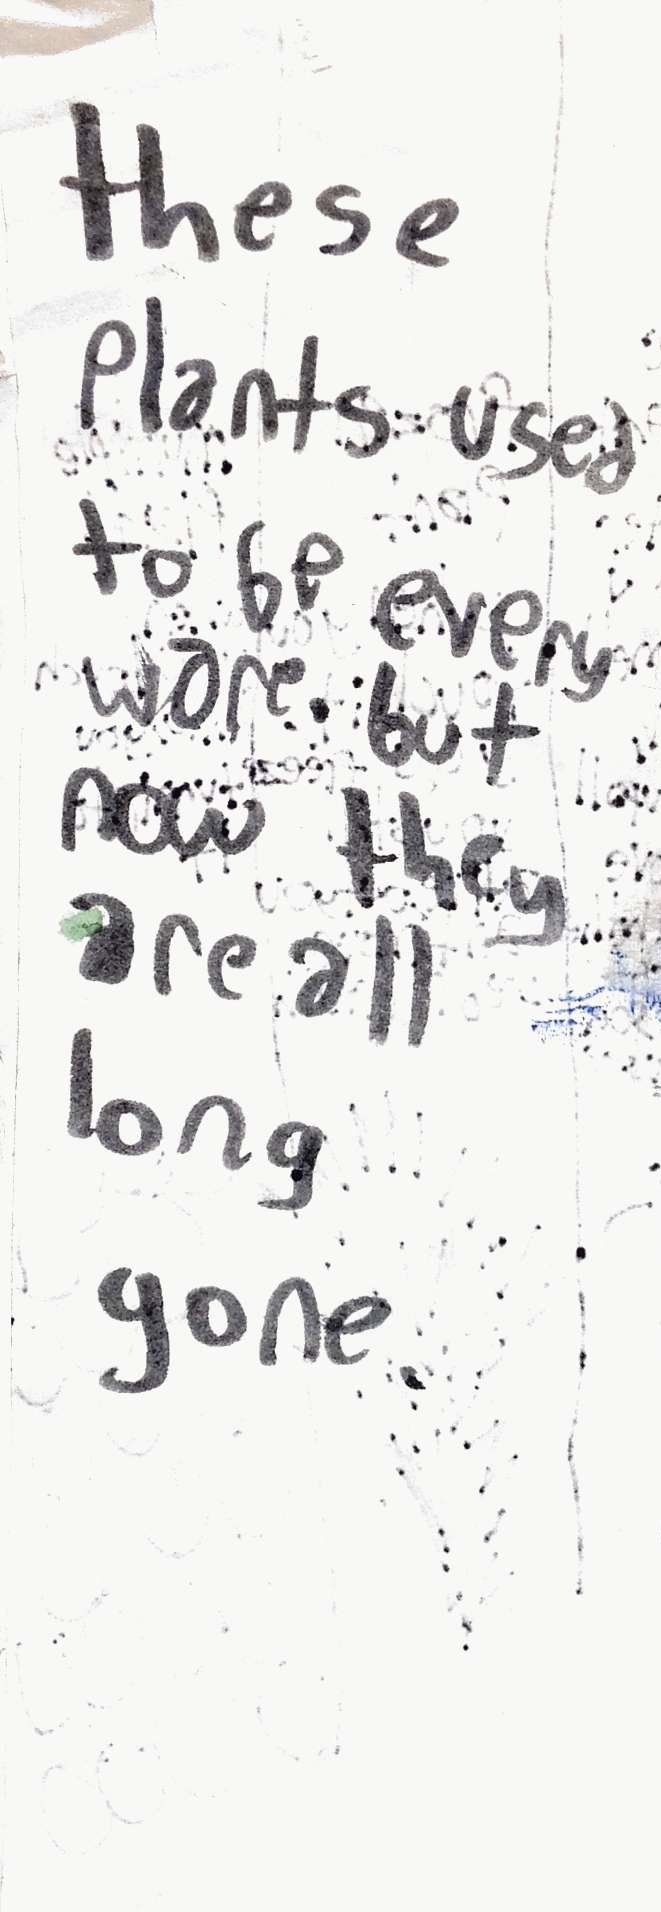 these
plants used
to be every
ware. but
now they
are all
long
gone.